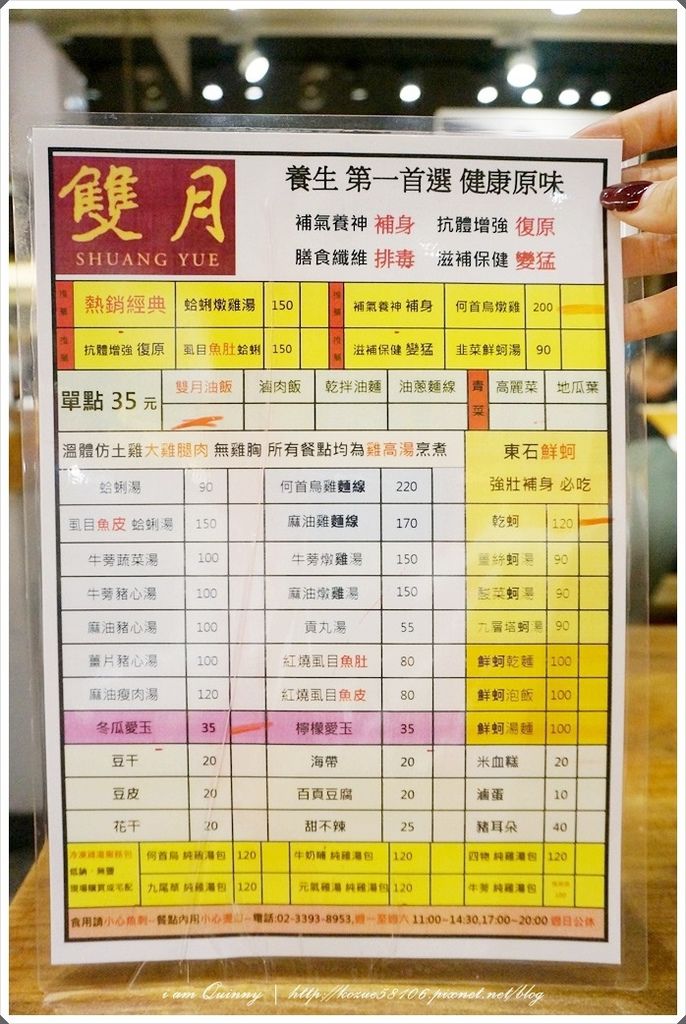 雙月
SHUANG YUE
養生 第一首選 健康原味
補氣養神 補身 抗體增強 復原
膳食纖維 排毒 滋補保健 變猛
推薦 熱銷經典 蛤蜊燉雞湯 150 推薦 補氣養神 補身 何首烏燉雞 200
推薦 抗體增強 復原 虱目魚肚蛤蜊 150 推薦 滋補保健 變猛 韭菜鮮蚵湯 90
單點 35 元 雙月油飯 滷肉飯 乾拌油麵 油蔥麵線 青菜 高麗菜 地瓜葉
溫體仿土雞大雞腿肉 無雞胸 所有餐點均為雞高湯烹煮
東石鮮蚵
強壯補身 必吃
蛤蜊湯 90 何首烏雞麵線 220
虱目魚皮 蛤蜊湯 150 麻油雞麵線 170 乾蚵 120
牛蒡蔬菜湯 100 牛蒡燉雞湯 150 薑絲蚵湯 90
牛蒡豬心湯 100 麻油燉雞湯 150 酸菜蚵湯 90
麻油豬心湯 100 貢丸湯 55 九層塔蚵湯 90
薑片豬心湯 100 紅燒虱目魚肚 80 鮮蚵乾麵 100
麻油瘦肉湯 120 紅燒虱目魚皮 80 鮮蚵泡飯 100
冬瓜愛玉 35 檸檬愛玉 35 鮮蚵湯麵 100
豆干 20 海帶 20 米血糕 20
豆皮 20 百頁豆腐 20 滷蛋 10
花干 20 甜不辣 25 豬耳朵 40
何首烏 純雞湯包 120 牛奶埔 純雞湯包 120 四物 純雞湯包 120
低鈉、無鹽
現場購買或宅配
九尾草 純雞湯包 120 元氣雞湯 純雞湯包 120 牛蒡 純雞湯包 100
食用請小心魚刺--餐點內用小心燙口--電話:02-3393-8953,週一至週六 11:00~14:30,17:00~20:00 週日公休
i am Quinny | http://kozue58106.pixnet.net/blog